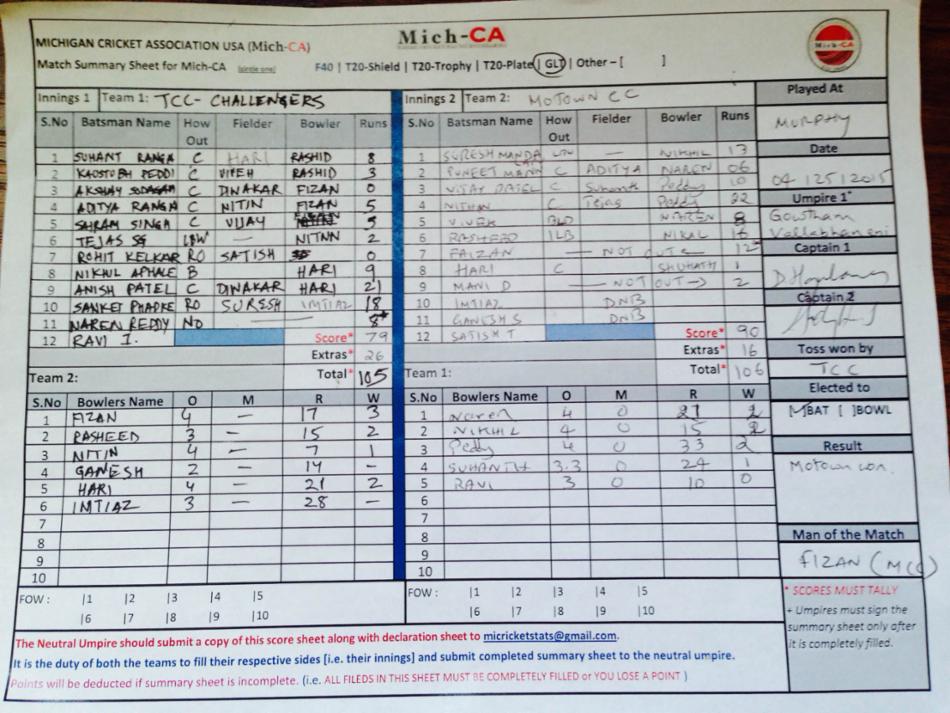 MICHIGAN CRICKET ASSOCIATION USA (Mich-CA)
Mich-CA
Mich-CA
Match Summary Sheet for Mich-CA (circle one) F40 | T20-Shield | T20-Trophy | T20-Plate | GLT | Other – [ ]
Innings 1 Team 1: TCC- CHALLENGERS
S.No Batsman Name How Out Fielder Bowler Runs
1 SUHANT RANGA C HARI RASHID 8
2 KAOSTUBH PEDDI C VIVEH RASHID 3
3 AKSHAY C DINAKAR FIZAN 0
4 ADITYA RANGA C NITIN FIZAN 5
5 SAHRAM SINGA C VIJAY 5
6 TEJAS SG LBW — NITNN 2
7 ROHIT KELKAR RO SATISH 0
8 NIKHIL APHALE B HARI 9
9 ANISH PATEL C DINAKAR HARI 21
10 SANKET PHADKE RO SURESH IMTIAZ 18
11 NAREN REDDY NO — 8*
12 RAVI I. Score* 79
Extras* 26
Team 2: Total* 105
S.No Bowlers Name O M R W
1 FIZAN 4 — 17 3
2 RASHEED 3 — 15 2
3 NITIN 4 — 7 1
4 GANESH 2 — 14 –
5 HARI 4 — 21 2
6 IMTIAZ 3 — 28 –
7
8
9
10
FOW : |1 |2 |3 |4 |5
|6 |7 |8 |9 |10
Innings 2 Team 2: MOTOWN CC
S.No Batsman Name How Out Fielder Bowler Runs
1 SURESH MANDA LBW — NIKHIL 13
2 PUNEET MANN C ADITYA NAREN 06
3 VIJAY PATEL C Suhanth Peddy 10
4 NITHIN C Tejas Peddy 22
5 VIVEK BLD NAREN 8
6 RASHEED ILB NIKAL 16
7 FAIZAN — NOT OUT — 12*
8 HARI C SHUHATH 1
9 MANI D — NOT OUT → 2
10 IMTIAZ DNB
11 GANESH S DNB
12 SATISH T Score* 90
Extras* 16
Team 1: Total* 106
S.No Bowlers Name O M R W
1 Naren 4 0 21 2
2 NIKHIL 4 0 15 2
3 Peddy 4 0 33 2
4 SUHANTH 3.3 0 24 1
5 RAVI 3 0 10 0
6
7
8
9
10
FOW : |1 |2 |3 |4 |5
|6 |7 |8 |9 |10
Played At
MURPHY
Date
04 125 1 2015
Umpire 1*
Gowtham
Vallabhaneni
Captain 1
Captain 2
Toss won by
TCC
Elected to
[✓]BAT [ ]BOWL
Result
Motown won.
Man of the Match
FIZAN (MCC)
* SCORES MUST TALLY
+ Umpires must sign the
summary sheet only after
it is completely filled.
The Neutral Umpire should submit a copy of this score sheet along with declaration sheet to micricketstats@gmail.com.
It is the duty of both the teams to fill their respective sides [i.e. their innings] and submit completed summary sheet to the neutral umpire.
Points will be deducted if summary sheet is incomplete. (i.e. ALL FILEDS IN THIS SHEET MUST BE COMPLETELY FILLED or YOU LOSE A POINT )